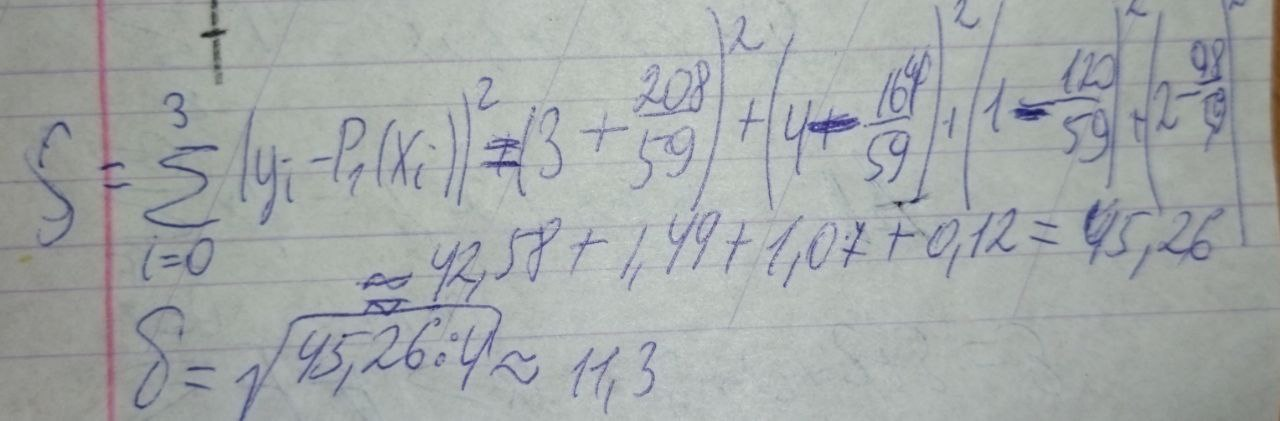 δ = 3 Σ i=0 (yᵢ - P₁(xᵢ))² = (3 + 208/59)² + (4 - 164/59)² + (1 - 120/59)² + (2 - 98/59)²
≈ 42,58 + 1,49 + 1,07 + 0,12 = 45,26
δ = √45,26:4 ≈ 11,3